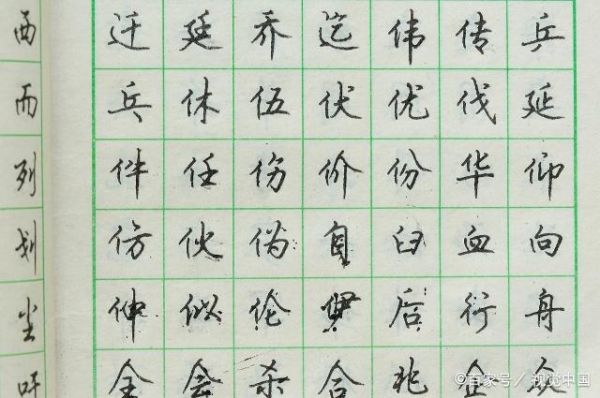 西
而
列
划
尘
迁 廷 乔 迄 伟 传 乒
乓 休 伍 伏 优 伐 延
件 任 伤 价 份 华 仰
仿 伙 伪 自 臼 血 向
似 伦 后 行 舟
全 会 杀 合 兆 企 众
©百家号/视觉中国